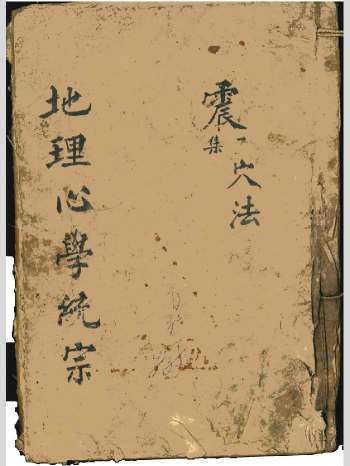 震集 穴法
地理心學統宗